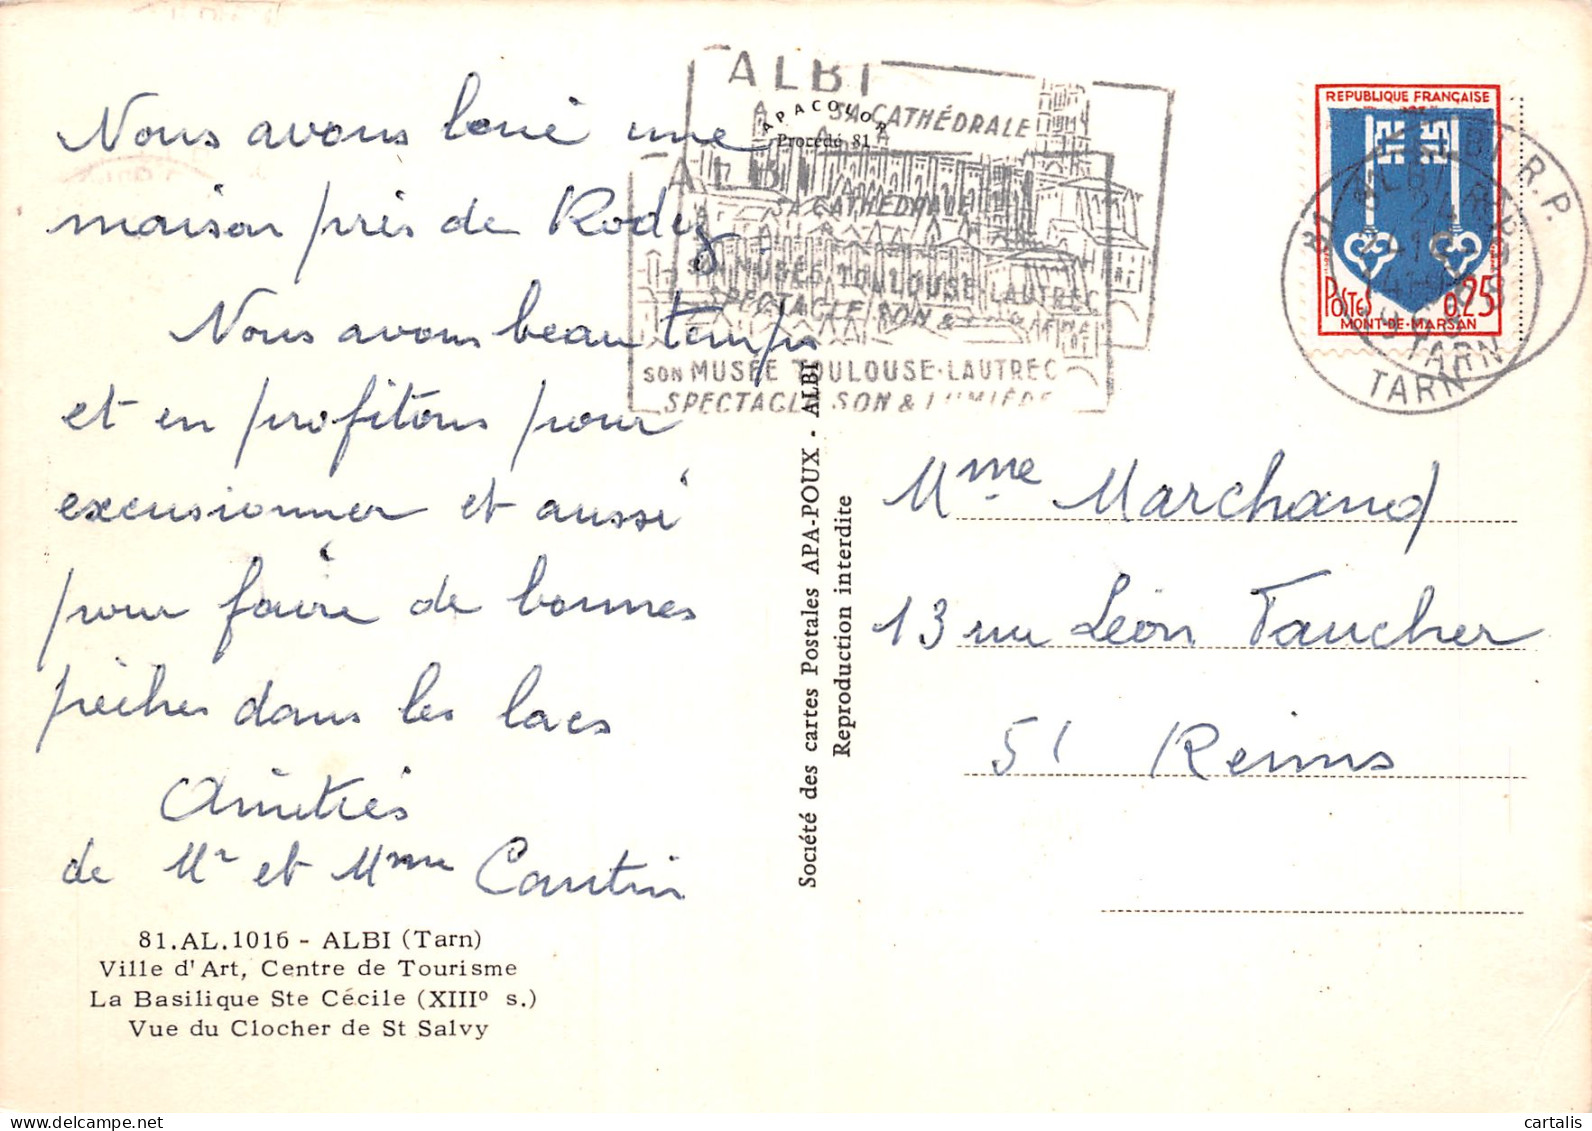 Nous avons loué une
maison près de Rodez
Nous avons beau temps
et en profitons pour
excursionner et aussi
pour faire de bonnes
pêches dans les lacs
Amitiés
de Mr et Mme Cantin
81.AL.1016 - ALBI (Tarn)
Ville d'Art, Centre de Tourisme
La Basilique Ste Cécile (XIIIº s.)
Vue du Clocher de St Salvy
APACOLOR
Procédé 81
Société des cartes Postales APA-POUX - ALBI
Reproduction interdite
ALBI
SA CATHÉDRALE
SON MUSÉE TOULOUSE-LAUTREC
SPECTACLE SON &
ALBI
SA CATHÉDRALE
SON MUSÉE TOULOUSE-LAUTREC
SPECTACLE SON & LUMIÈRE
REPUBLIQUE FRANÇAISE
POSTES 0,25
MONT-DE-MARSAN
81 ALBI R.P.
TARN
TARN
Mme Marchand
13 rue Léon Faucher
51 Reims
cartalis